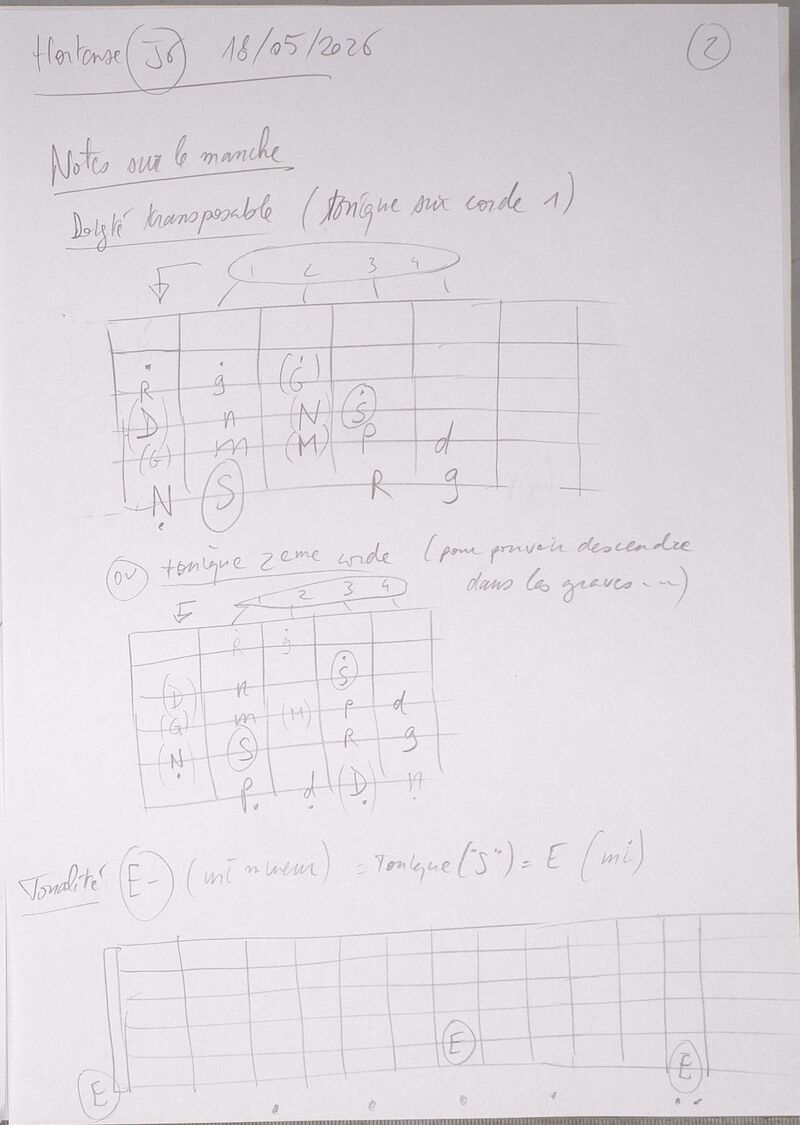 Hortense J6 18/05/2026 2
Notes sur le manche
Doigté transposable (tonique sur corde 1)
1 2 3 4
R g (G)
(D) n (N) S
(G) m (M) P d
N S R g
ou tonique 2eme corde (pour pouvoir descendre
dans les graves...)
1 2 3 4
R g
(D) n S
(G) m (M) P d
(N) S R g
P d (D) n
Tonalité E- (mi mineur) = Tonique ("S") = E (mi)
E
E
E